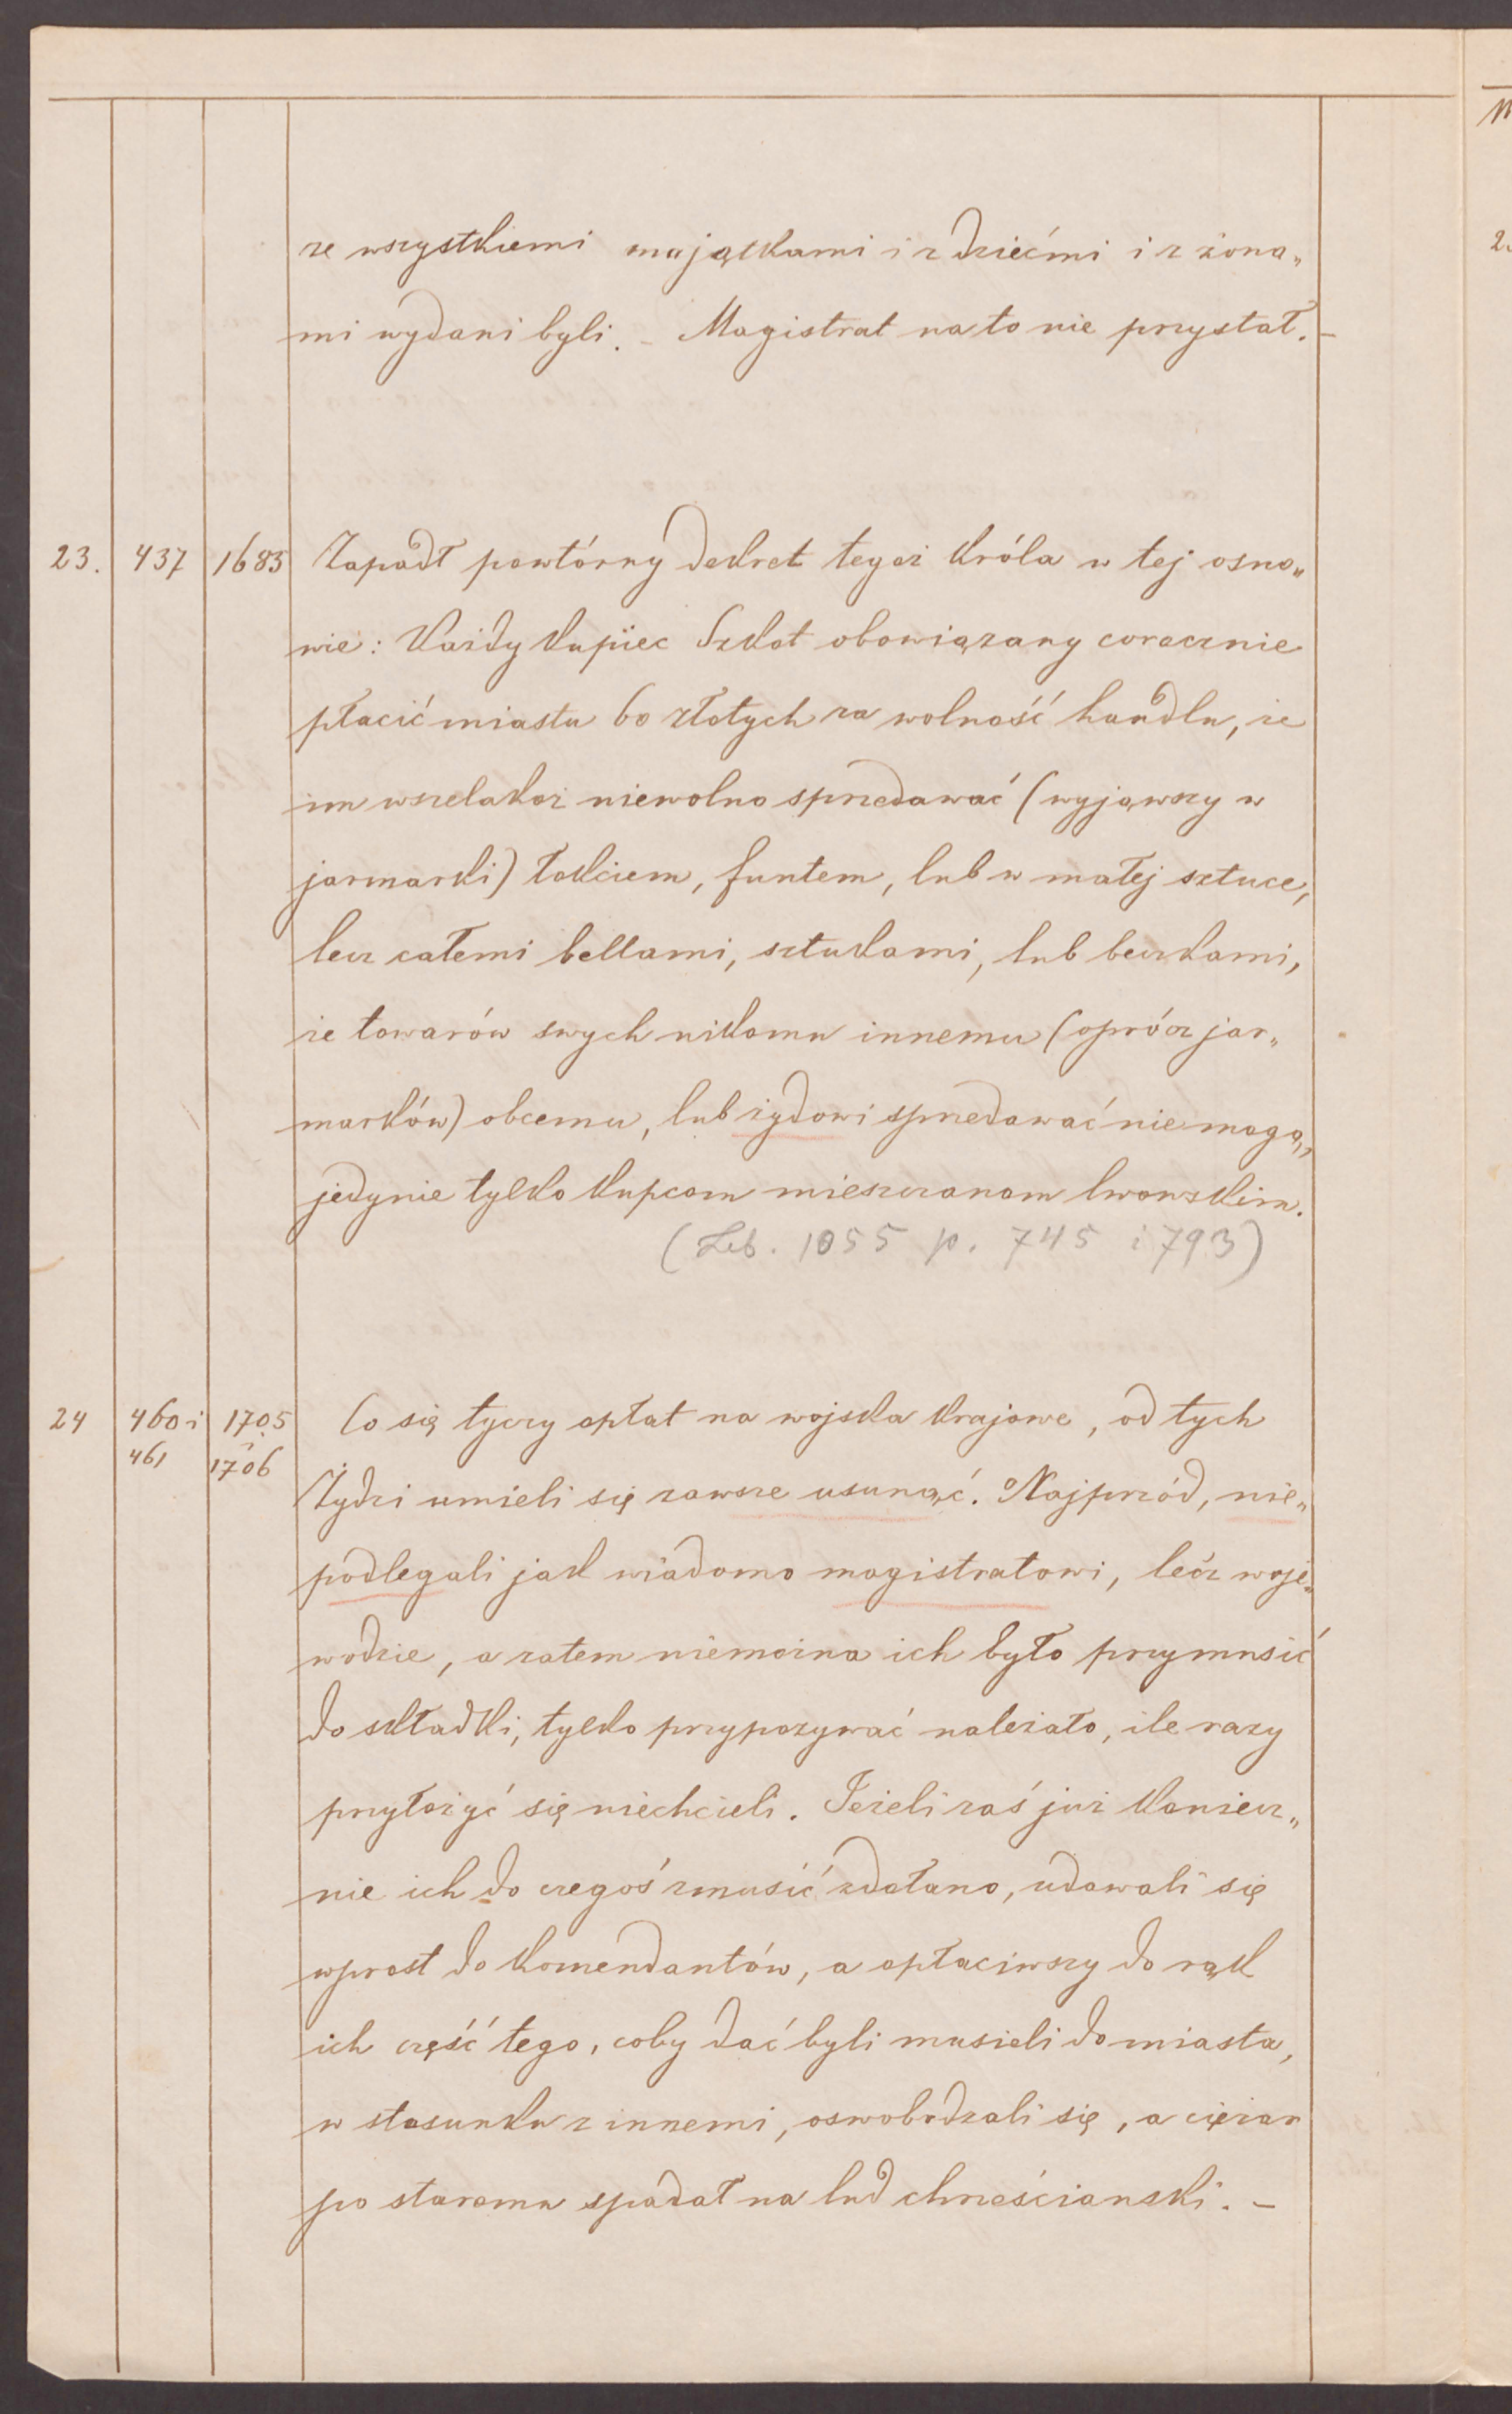 ze wszystkiemi majątkami i z dziećmi i z żona„
mi wydani byli. – Magistrat na to nie przystał. –
23. 437 1683 Zapadł powtórny dekret tegoż króla w tej osno„
wie: Każdy kupiec Szkot obowiązany corocznie
płacić miastu 60 złotych za wolność handlu, że
im wszelakoż niewolno sprzedawać (wyjąwszy w
jarmarki) łokciem, funtem, lub w małej sztuce,
lecz całemi bellami, sztukami, lub beczkami,
że towarów swych nikomu innemu (oprócz jar„
marków) obcemu, lub żydowi sprzedawać nie mogą,
jedynie tylko kupcom mieszczanom lwowskim.
(Leb. 1055 p. 745 i 793)
24 460 i 1705 Co się tyczy opłat na wojska krajowe, od tych
461 i 1706 Żydzi umieli się zawsze usunąć. Najprzód, nie„
podlegali jak wiadomo magistratowi, lecz woje„
wodzie, a zatem niemożna ich było przymusić
do składki, tylko przypozywać należało, ile razy
przyłożyć się niechcieli. Jeżeli zaś już koniecz„
nie ich do czegoś zmusić zdołano, udawali się
wprost do komendantów, a opłaciwszy do rąk
ich część tego, coby dać byli musieli do miasta,
w stosunku z innemi, oswobodzali się, a ciężar
po staremu spadał na lud chrześcianski. –